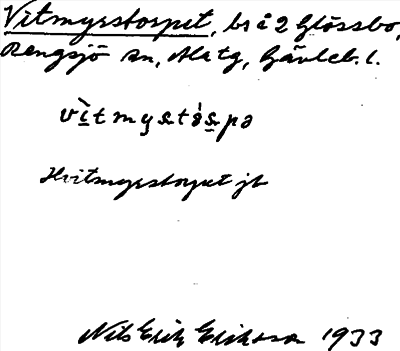 Vitmyrstorpet, br å 2 Glössbo,
Rengsjö sn, Ala tg, Gävleb. l.
vìtmystòspə
Hvitmyrstorpet jb
Nils Erik Eriksson 1933